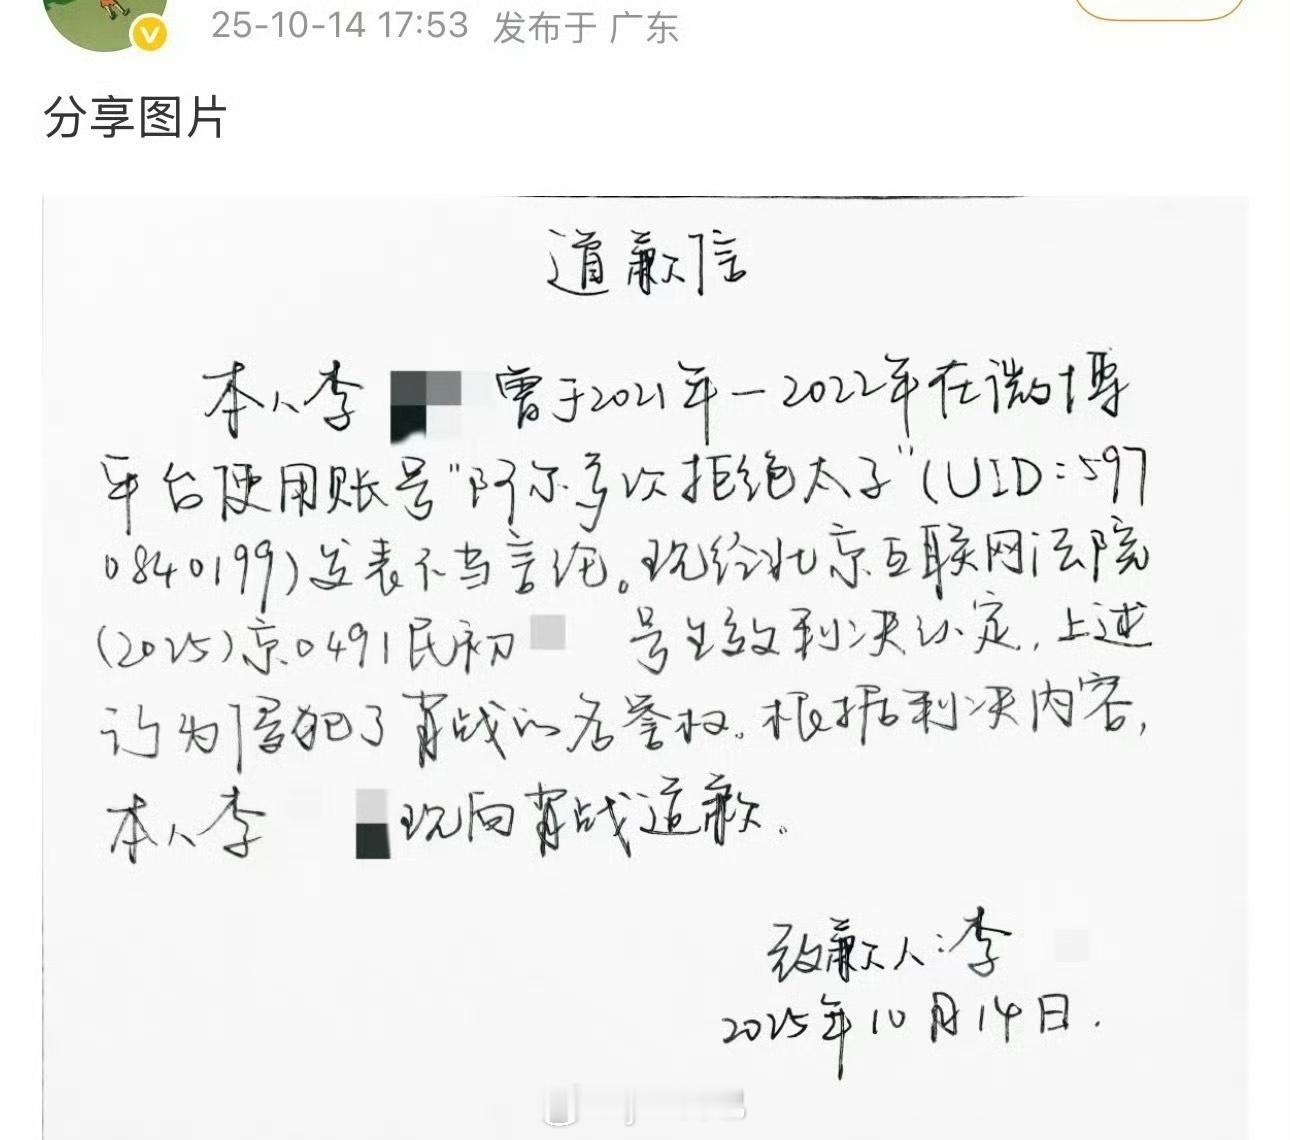 25-10-14 17:53 发布于 广东
分享图片
道歉信
本人李 曾于2021年—2022年在微博
平台使用账号“阿尔多次拒绝太子”(UID:597
0840199)发表不当言论。现经北京互联网法院
(2025)京0491民初 号生效判决认定,上述
行为侵犯了肖战的名誉权。根据判决内容,
本人李 现向肖战道歉。
致歉人:李
2025年10月14日.